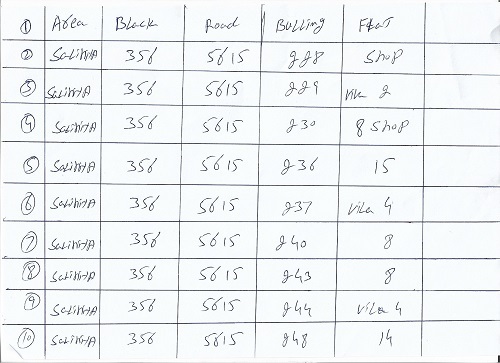 ① Area Black Road Bulling Flat
② SaLiHHA 356 5615 228 Shop
③ SaLiHHA 356 5615 229 Vila 2
④ SaLiHHA 356 5615 230 8 Shop
⑤ SaLiHHA 356 5615 236 15
⑥ SaLiHHA 356 5615 237 Vila 4
⑦ SaLiHHA 356 5615 240 8
⑧ SaLiHHA 356 5615 243 8
⑨ SaLiHHA 356 5615 244 Vila 4
⑩ SaLiHHA 356 5615 248 14